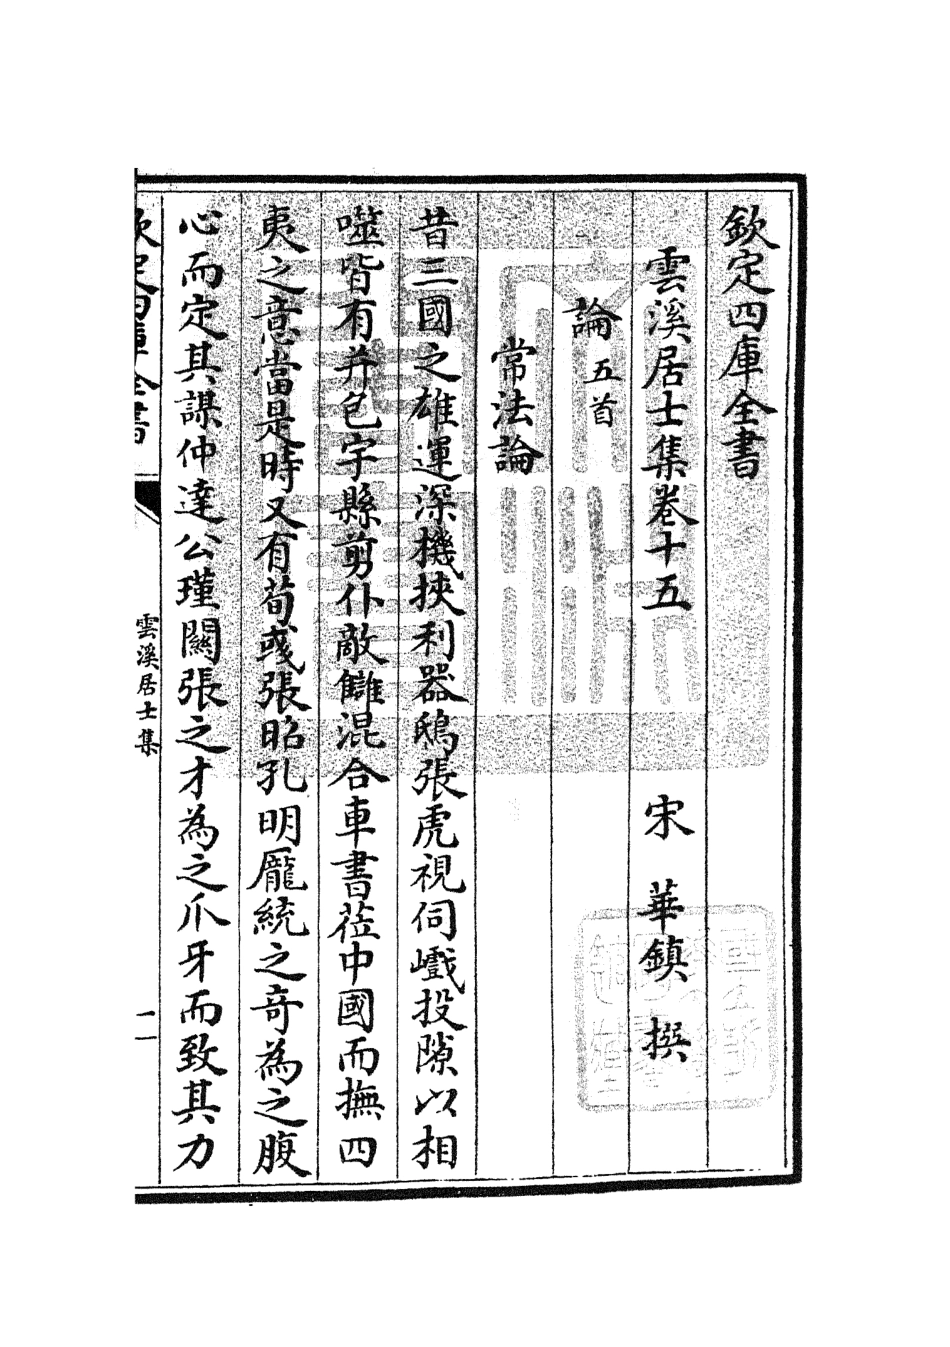 欽定四庫全書
雲溪居士集卷十五
宋 華鎮 撰
論五首
常法論
昔三國之雄運深機挾利器鴟張虎視伺巇投隙以相
噬皆有并包宇縣剪仆敵讎混合車書莅中國而撫四
夷之意當是時又有荀彧張昭孔明龎統之奇為之腹
心而定其謀仲達公瑾關張之才為之爪牙而致其力
欽定四庫全書
雲溪居士集
一